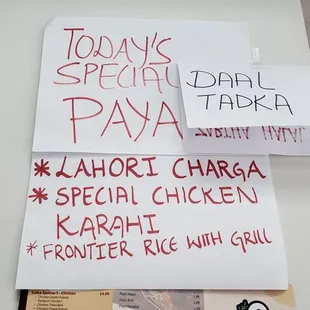 TODAY'S
SPECIAL
PAYA
DAAL
TADKA
* LAHORI CHARGA
* SPECIAL CHICKEN
KARAHI
* FRONTIER RICE WITH GRILL